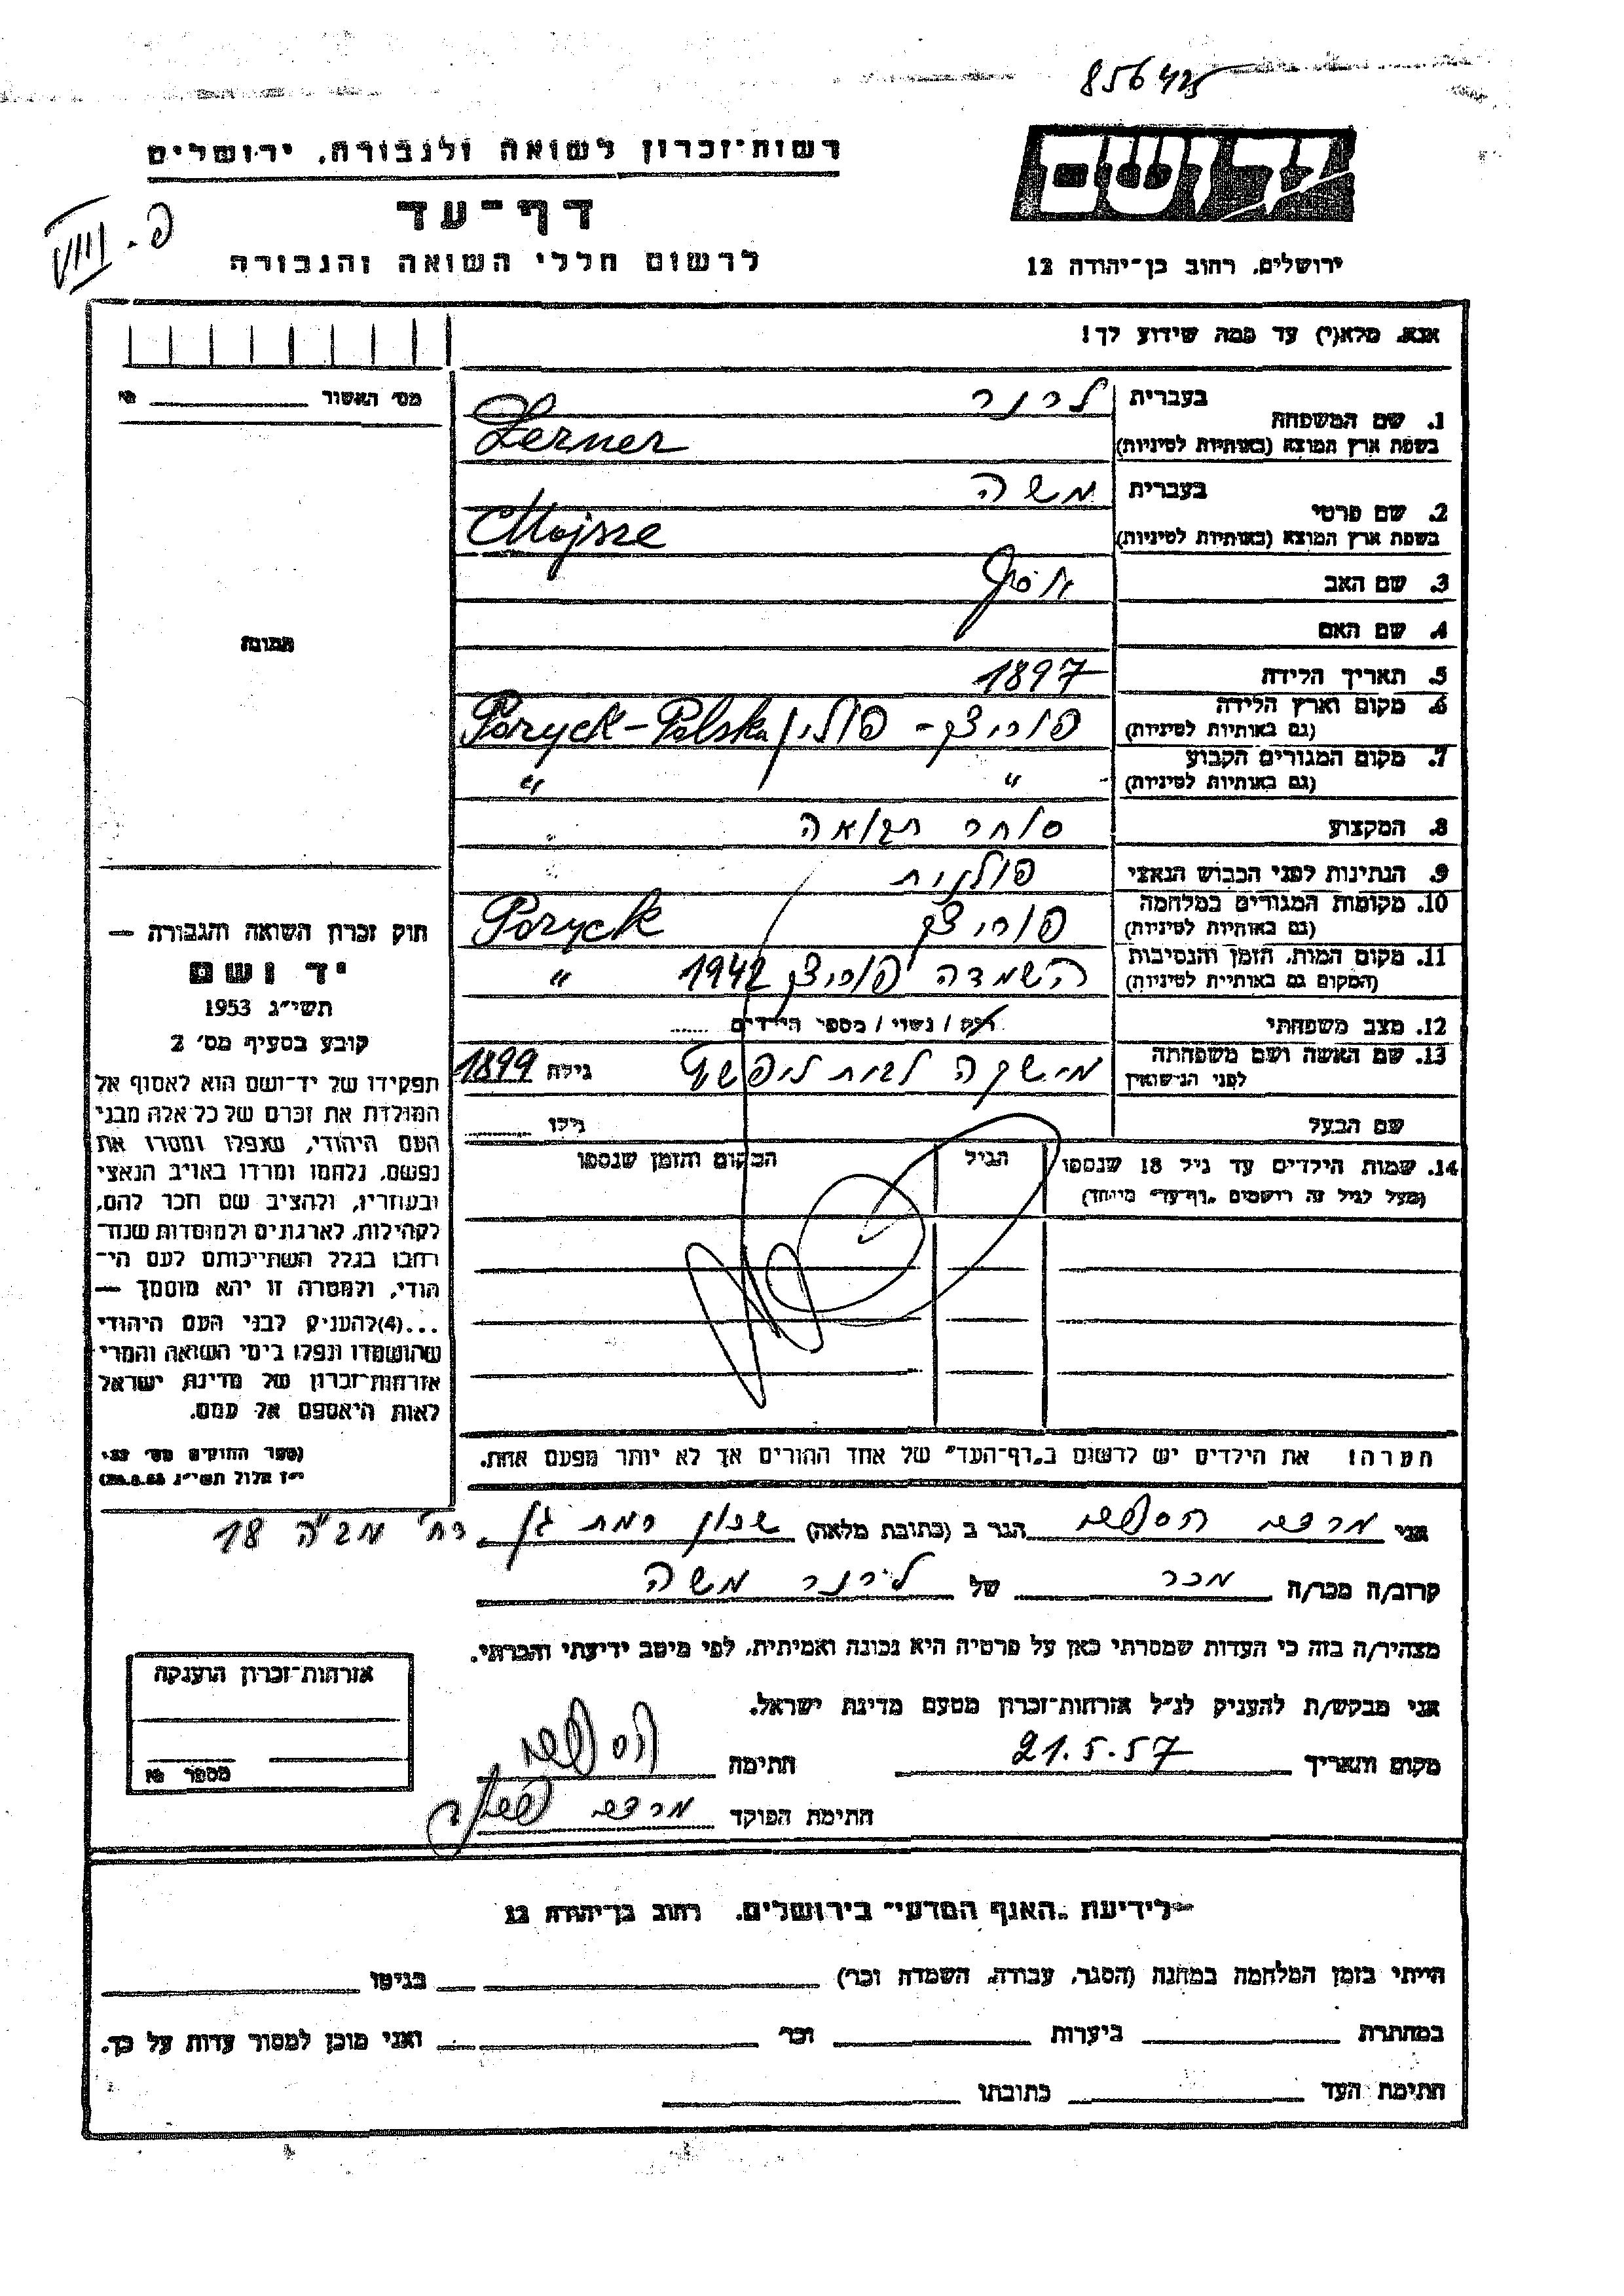 85642
רשות־זכרון לשואה ולגבורה, ירושלים
דף־עד
לרשום חללי השואה והגבורה
VIII - פ
ירושלים, רחוב בן־יהודה 12
אנא, מלא(י) עד כמה שידוע לך!
מס׳ האשור
1. שם המשפחה
בעברית לרנר
בשפת ארץ המוצא (באותיות לטיניות) Lerner
2. שם פרטי
בעברית משה
בשפת ארץ המוצא (באותיות לטיניות) Mojsze
3. שם האב יוסף
4. שם האם
5. תאריך הלידה 1897
6. מקום וארץ הלידה
(גם באותיות לטיניות) פוריצק - פולין Poryck - Polska
7. מקום המגורים הקבוע
(גם באותיות לטיניות) " "
8. המקצוע סוחר תבואה
9. הנתינות לפני הכבוש הנאצי פולנית
10. מקומות המגורים במלחמה
(גם באותיות לטיניות) פוריצק Poryck
11. מקום המות, הזמן והנסיבות
(המקום גם באותיות לטיניות) השמדה פוריצק 1942 "
12. מצב משפחתי רוק / נשוי / מספר הילדים
13. שם האשה ושם משפחתה
לפני הנישואין לבית גילה 1899
שם הבעל גילו
14. שמות הילדים עד גיל 18 שנספו הגיל המקום והזמן שנספו
(מעל לגיל זה רושמים "דף־עד" מיוחד)
הערה: את הילדים יש לרשום ב"דף־העד" של אחד ההורים אך לא יותר מפעם אחת.
תמונה
חוק זכרון השואה והגבורה —
יד ושם
תשי״ג 1953
קובע בסעיף מס׳ 2
תפקידו של יד־ושם הוא לאסוף אל
המולדת את זכרם של כל אלה מבני
העם היהודי, שנפלו ומסרו את
נפשם, נלחמו ומרדו באויב הנאצי
ובעוזריו, ולהציב שם וזכר להם,
לקהילות, לארגונים ולמוסדות שנח־
רבו בגלל השתייכותם לעם הי־
הודי, ולמטרה זו יהא מוסמך —
...(4) להעניק לבני העם היהודי
שהושמדו ונפלו בימי השואה והמרי
אזרחות־זכרון של מדינת ישראל
לאות היאספם אל עמם.
(ספר החוקים מס׳ 132
י״ז אלול תשי״ג 28.8.53)
אני מרדכי הגר ב (כתובת מלאה) שכון רמת גן רח׳ 18
קרוב/ה מכר/ה מכר של לירנר משה
מצהיר/ה בזה כי העדות שמסרתי כאן על פרטיה היא נכונה ואמיתית, לפי מיטב ידיעתי והכרתי.
אני מבקש/ת להעניק לנ״ל אזרחות־זכרון מטעם מדינת ישראל.
מקום ותאריך 21.5.57 חתימה
חתימת הפוקד מרדכי
אזרחות־זכרון הוענקה
מספר
לידיעת "האגף המדעי" בירושלים, רחוב בן־יהודה 12
הייתי בזמן המלחמה במחנה (הסגר, עבודה, השמדה וכו׳) בגיטו
במחתרת ביערות וכו׳ ואני מוכן למסור עדות על כך.
חתימת העד כתובתו